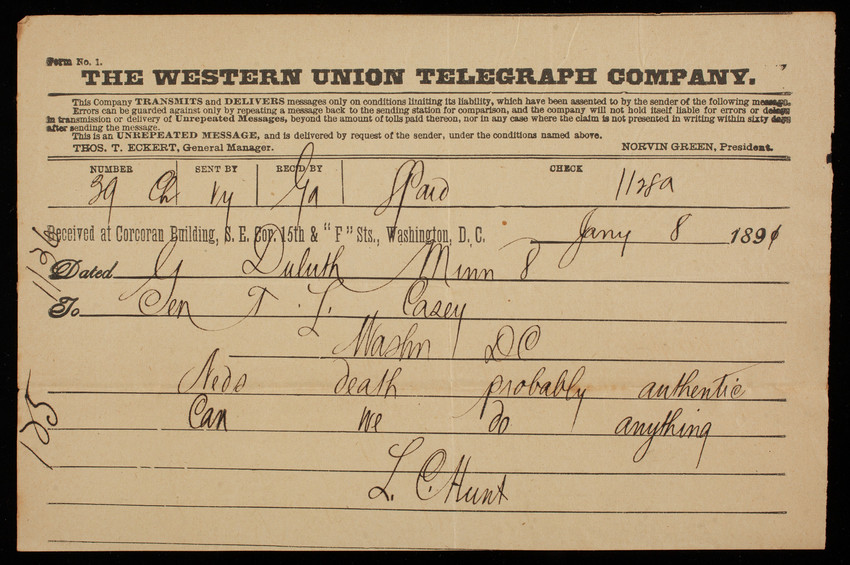 Form No. 1.
THE WESTERN UNION TELEGRAPH COMPANY.
This Company TRANSMITS and DELIVERS messages only on conditions limiting its liability, which have been assented to by the sender of the following message.
Errors can be guarded against only by repeating a message back to the sending station for comparison, and the company will not hold itself liable for errors or delays
in transmission or delivery of Unrepeated Messages, beyond the amount of tolls paid thereon, nor in any case where the claim is not presented in writing within sixty days
after sending the message.
This is an UNREPEATED MESSAGE, and is delivered by request of the sender, under the conditions named above.
THOS. T. ECKERT, General Manager. NORVIN GREEN, President.
NUMBER SENT BY REC'D BY CHECK
39 Ch Vy Ga Paid 1128a
Received at Corcoran Building, S. E. Cor. 15th & "F" Sts., Washington, D. C. Jany 8 1891
Dated G Duluth Minn 8
To Gen T. L. Casey
Washn DC
Neds death probably authentic
Can we do anything
L. C. Hunt
1126
125